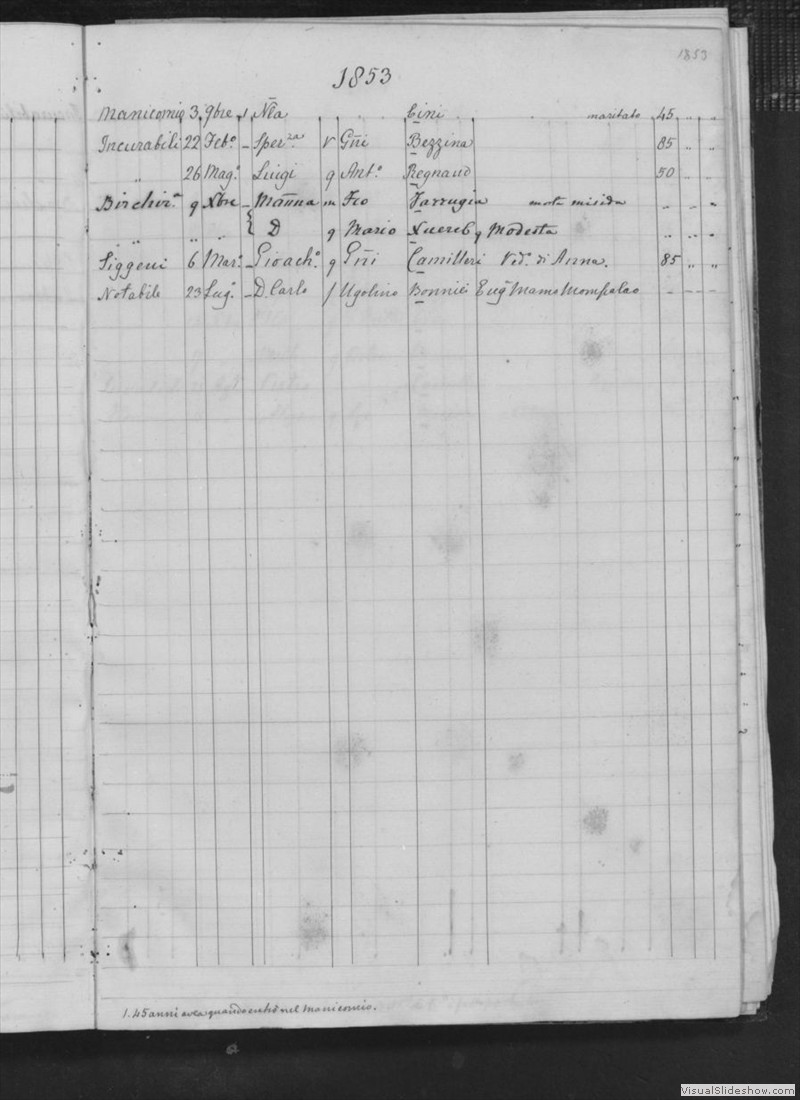 1853
1853
Manicomio 3 9bre 1 Nĩa " " Cini maritato 45 " "
Incurabili 22 Feb.o - Sper.za V Gñi Bezzina 85 " "
" 26 Mag.o Luigi q Ant.o Regnaud 50 " "
Birchir.a 9 Xbre - Marĩna m Fco Farrugia morta misida - - "
" " " " { D q Mario Xuereb q Modesta " " "
Siggeui 6 Mar.o - Gioach.o q Gñi Camilleri Ved.o di Anna. 85 " "
Notabile 23 Lug.o - D. Carlo f Ugolino Bonnici Eug.a Mamo Mompalao - - -
1. 45 anni avea quando entrò nel Manicomio.
VisualSlideshow.com